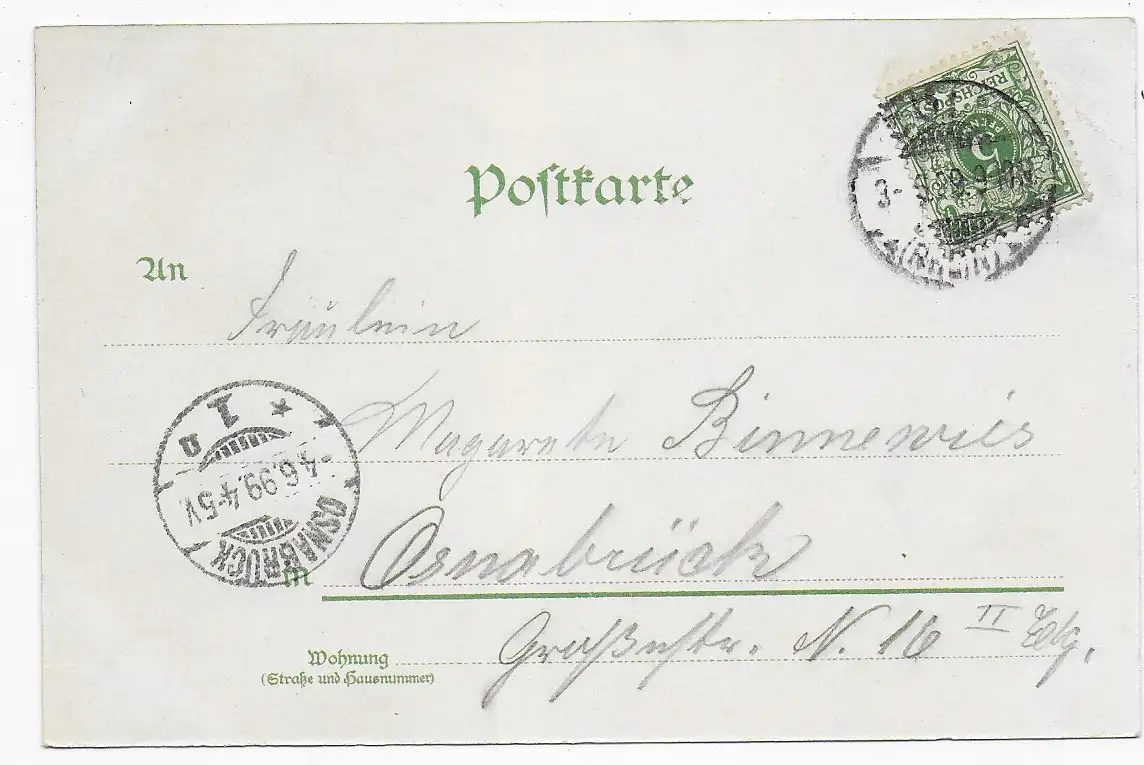 Postkarte
REICHSPOST
5
PFENNIG
3-
(RHEIN)
An
Fräulein
Magarete Binnewies
OSNABRÜCK
1
-4.6.99.4-5V.
in Osnabrück
Wohnung
(Straße und Hausnummer)
N. 16 II Etg.